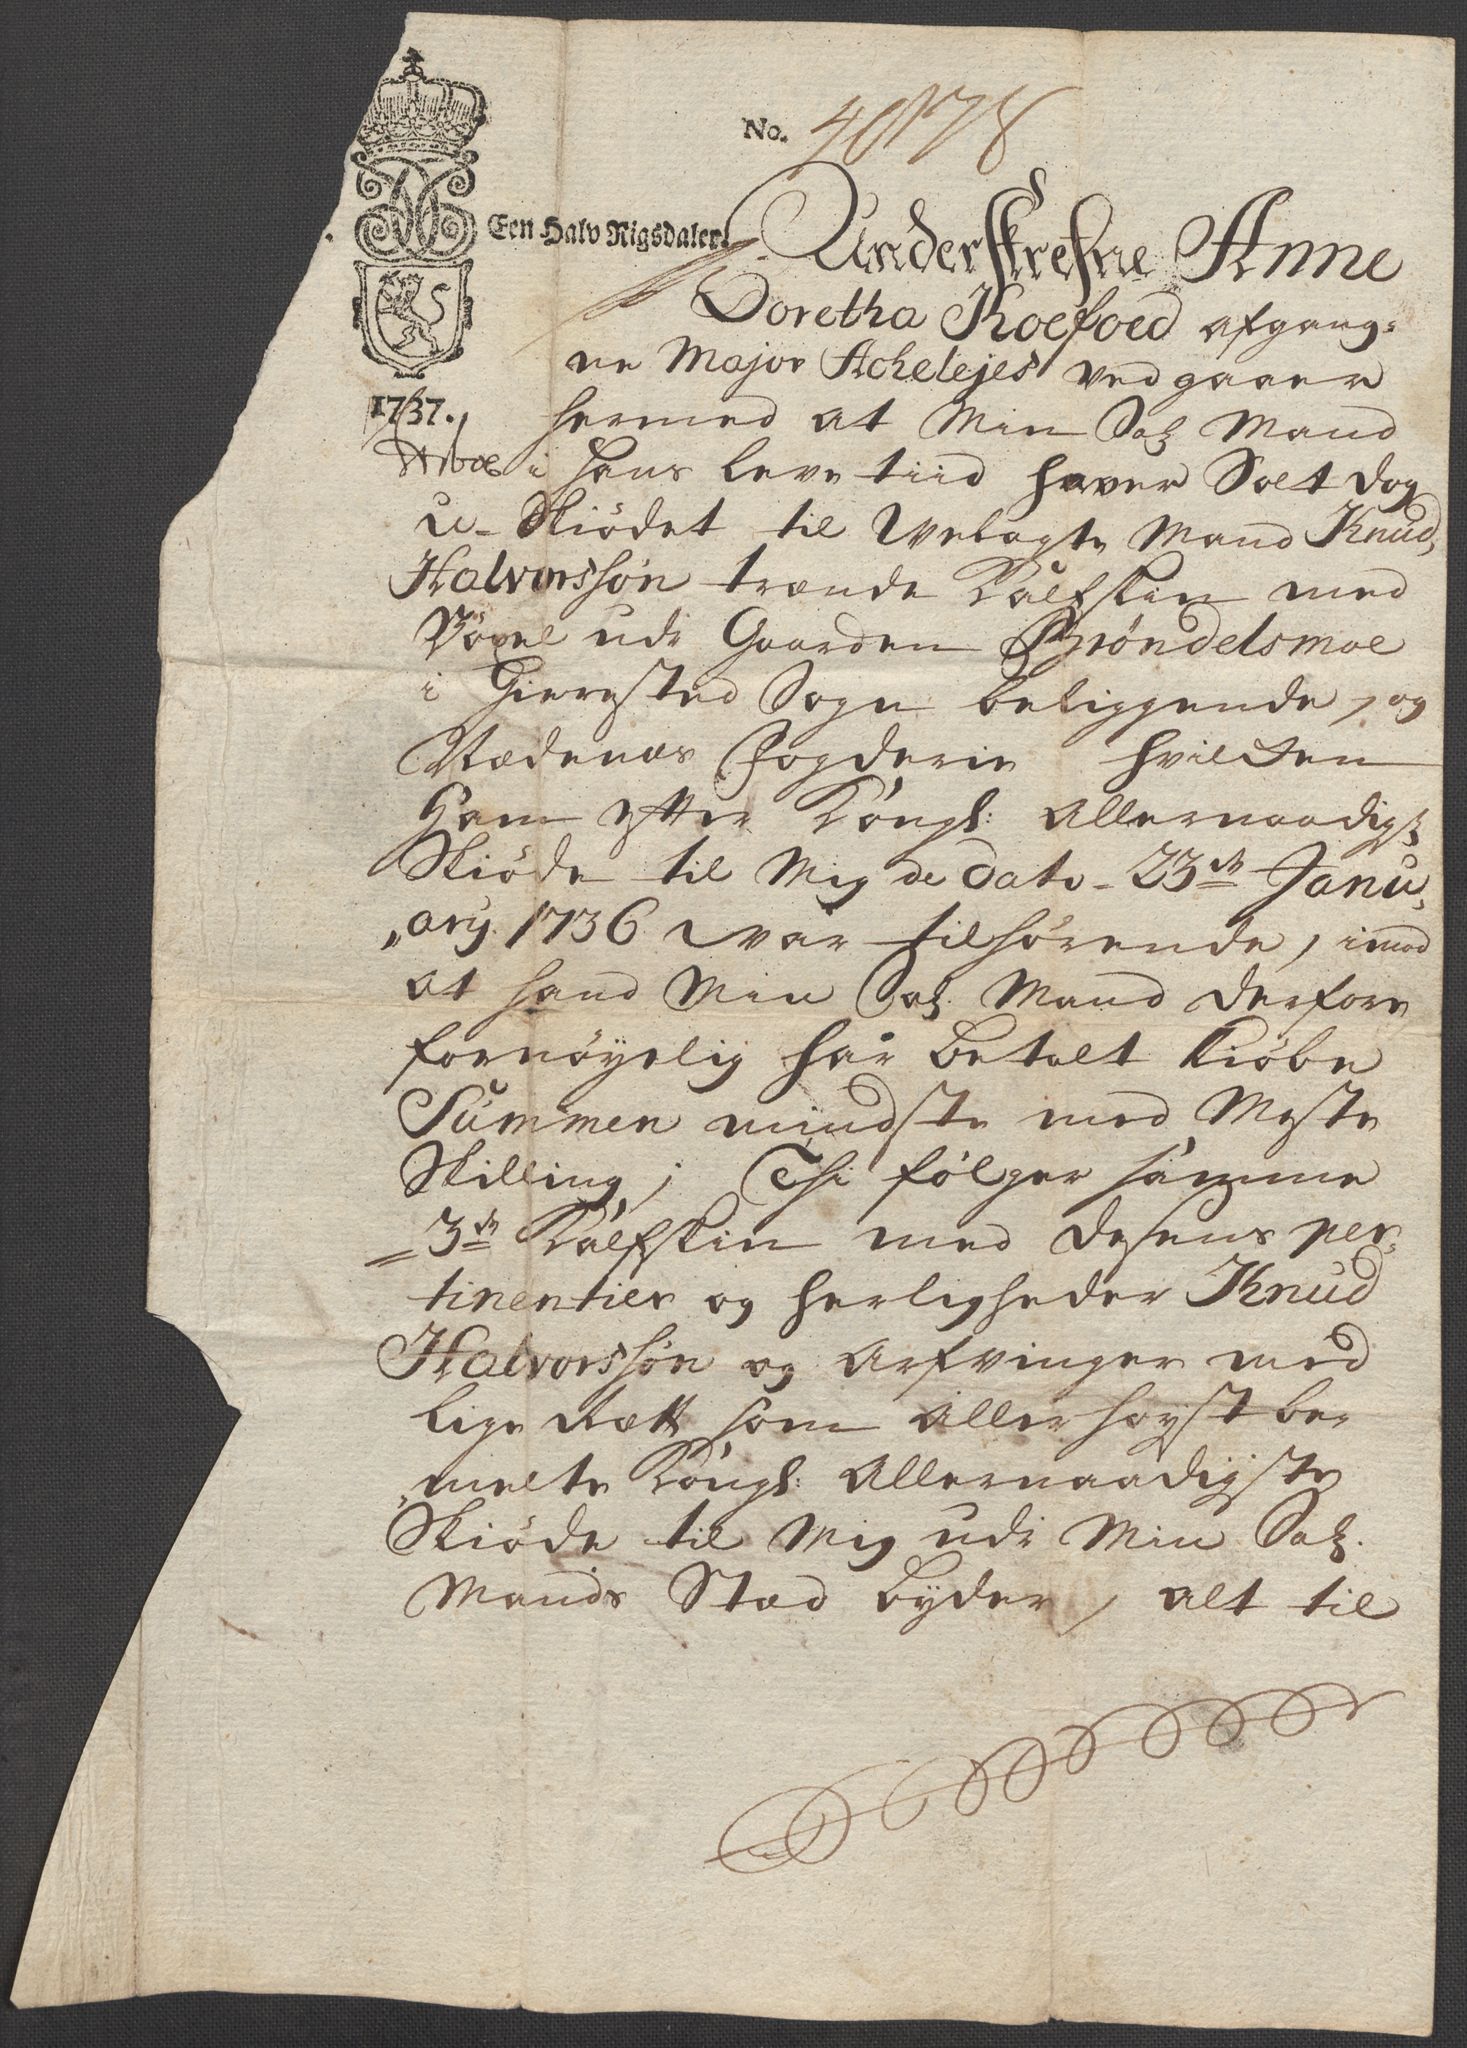 No. 40178
Een Halv Rigsdaler.
1737.
Underskrefne Anne
Doretha Koefoed afgang-
ne Major Acheleyes ved gaaer
hermed at Min Sal Mand
i hans leve tiid haver Solt dog
u-Skiödet til Welagte Mand Knud
Halvorssön trende Kalfskin med
Böxel udi Gaarden Bröndelsmoe
i Gierested Sogn beliggende, og
Nædenæs Fogderie hvilken
Ham efter Kongl: Allernaadigst
Skiöde til Mig de Dato 23de Janu,
,,ary. 1736 var tilhörende, imod
at hand Min Sal. Mand derfore
fornöyelig har betalt Kiöbe
Summen mindste med Meste
Skilling; Thi fölger samme
3de Kalfskin med desens per-
tinentier og herligheder Knud
Halvorssön og Arfvinger med
lige Rætt som Allerhöyst be,
,,melte Kongl: Allernaadigste
Skiöde til Mig udi Min Sal.
Mands Stæd byder, alt til